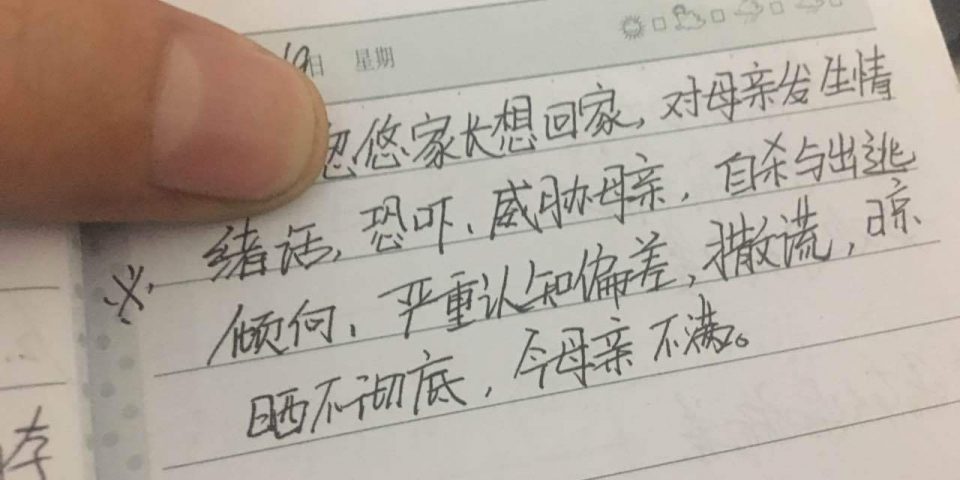 19日 星期
忽悠家长想回家,对母亲发生情
绪话,恐吓、威胁母亲,自杀与出逃
※ 倾向、严重认知偏差,撒谎,晾
晒不彻底,令母亲不满。
存